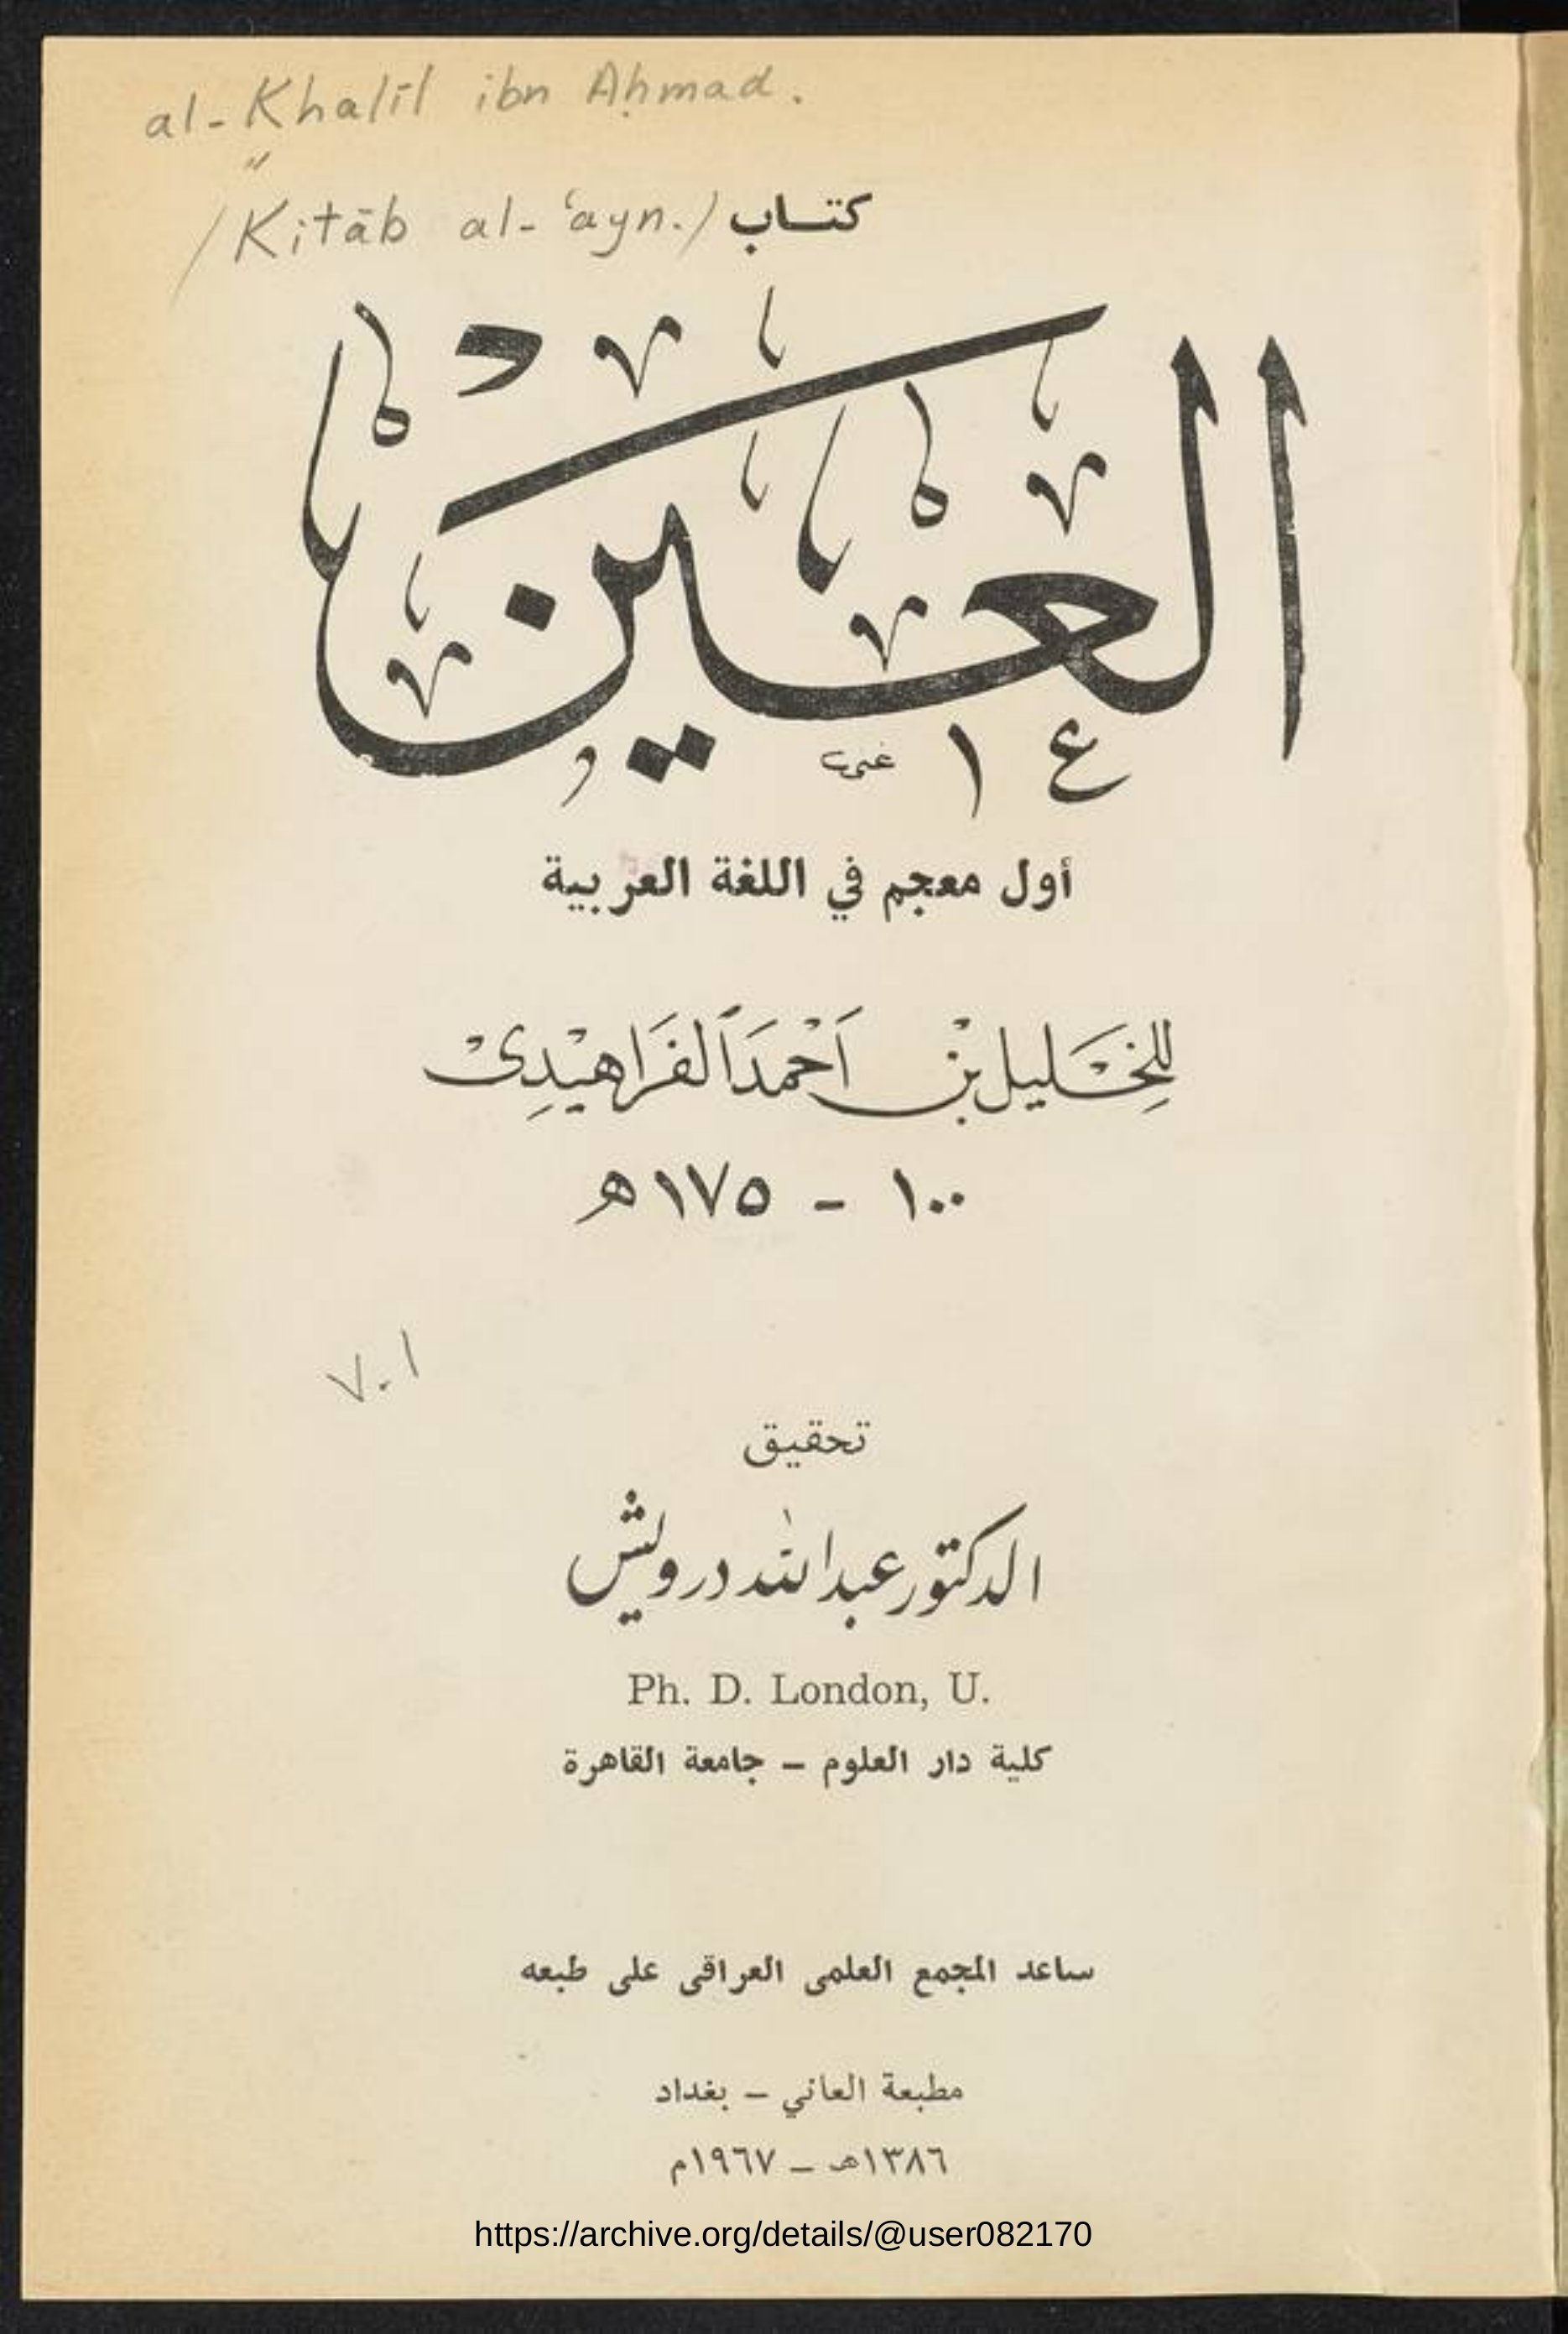 al-Khalīl ibn Aḥmad.
"
/Kitāb al-ʿayn./ كتاب
العين
أول معجم في اللغة العربية
لِلخَليل بْن أَحْمَد ٱلفَرَاهيْدِىْ
١٠٠ - ١٧٥ هـ
v.1
تحقيق
الدكتور عبد الله درويش
Ph. D. London, U.
كلية دار العلوم – جامعة القاهرة
ساعد المجمع العلمى العراقى على طبعه
مطبعة العاني – بغداد
١٣٨٦هـ – ١٩٦٧م
https://archive.org/details/@user082170